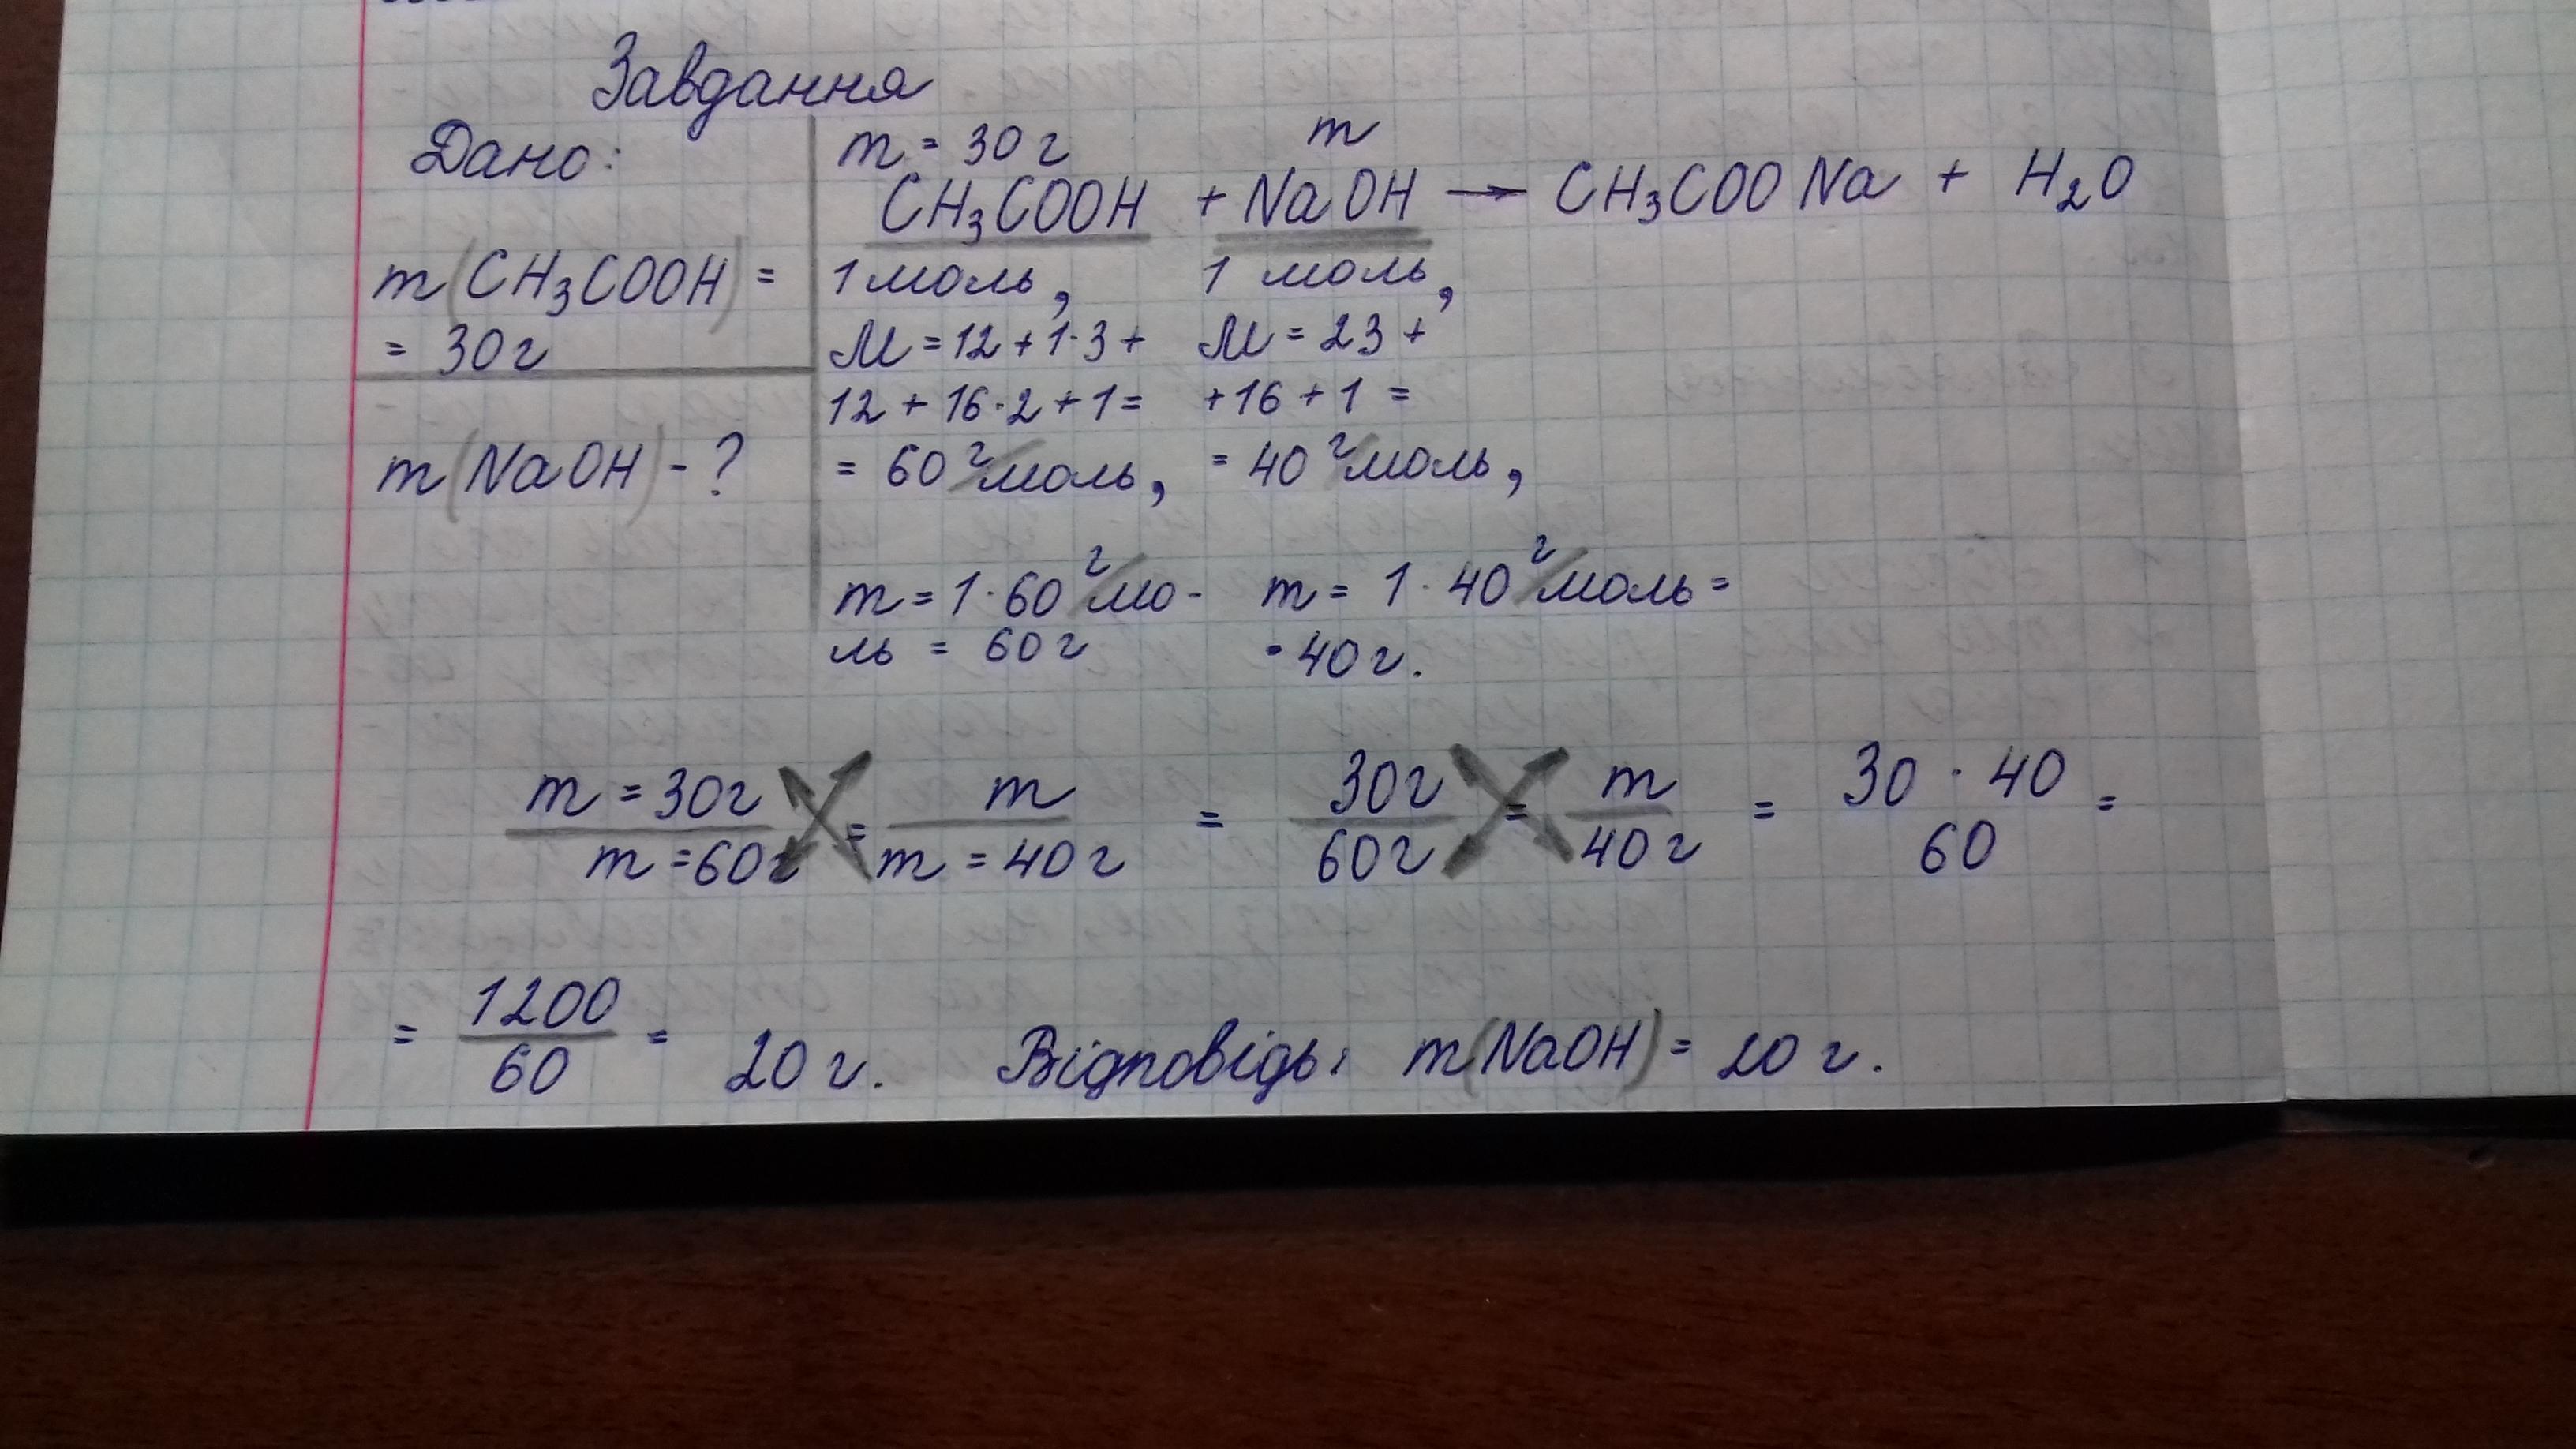 Завдання
Дано:
m(CH₃COOH) =
= 30г
m(NaOH) - ?
m = 30г m
CH₃COOH + NaOH → CH₃COONa + H₂O
1 моль, 1 моль,
M = 12 + 1·3 + M = 23 +
12 + 16·2 + 1 = +16 + 1 =
= 60 г/моль, = 40 г/моль,
m = 1·60 г/мо- m = 1·40 г/моль =
ль = 60г = 40г.
m = 30г / m = 60г = m / m = 40г = 30г / 60г = m / 40г = 30 · 40 / 60 =
= 1200 / 60 = 20г. Відповідь: m(NaOH) = 20г.